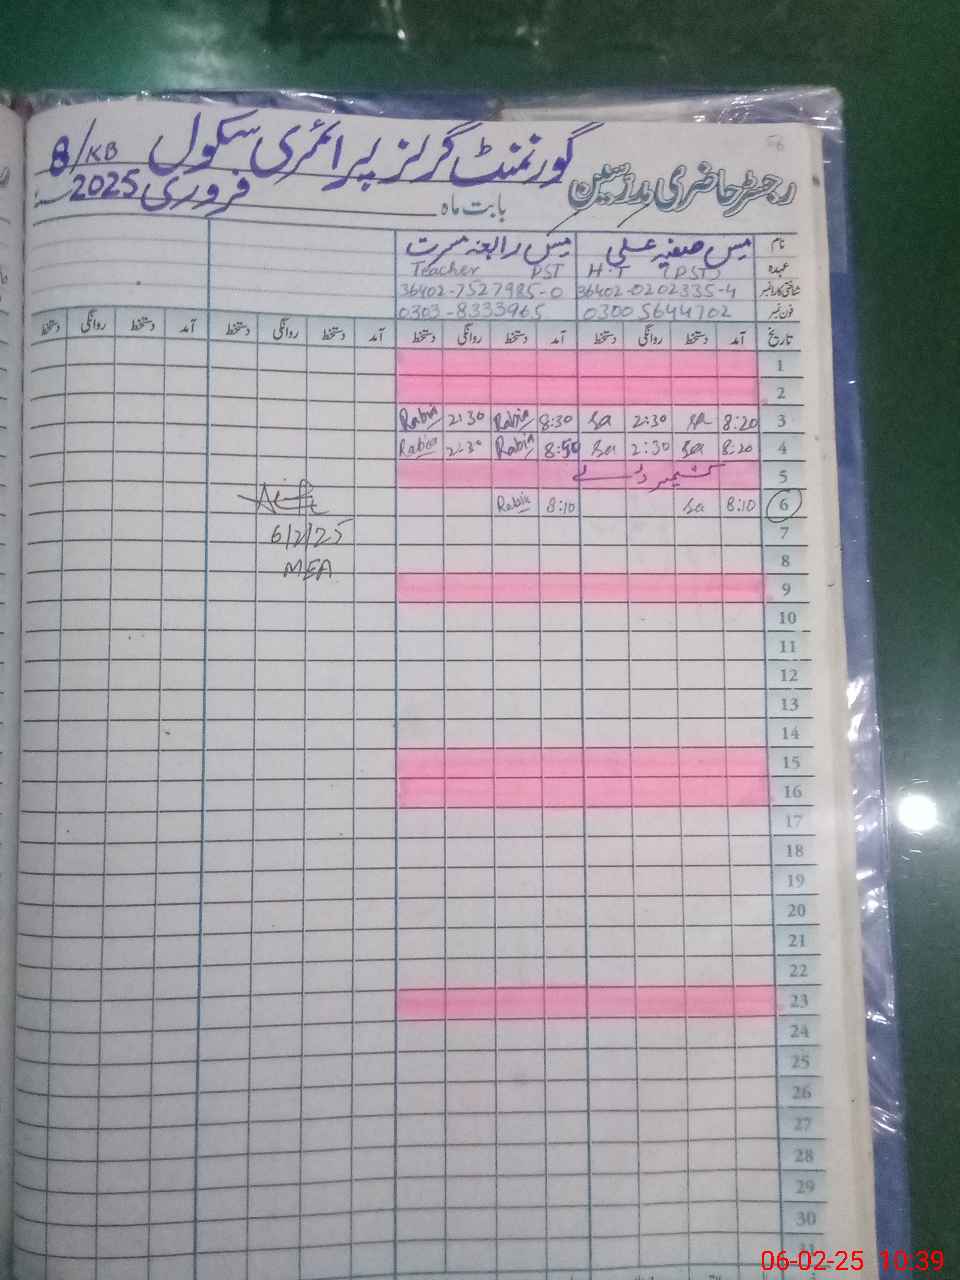 رجسٹر حاضری مدرسین گورنمنٹ گرلز پرائمری سکول 8/KB
بابت ماہ فروری 2025
نام مس صفیہ علی مس رابعہ مسرت
عہدہ H.T (PST) Teacher PST
شناختی کارڈ نمبر 36402-0202335-4 36402-7527985-0
فون نمبر 03005644702 0303-8333965
تاریخ آمد دستخط روانگی دستخط آمد دستخط روانگی دستخط آمد دستخط روانگی دستخط آمد دستخط روانگی دستخط
1
2
3 8:20 sa 2:30 sa 8:30 Rabia 2:30 Rabia
4 8:20 sa 2:30 sa 8:50 Rabia 2:30 Rabia
5 کشمیر ڈے
6 8:10 sa 8:10 Rabia
7 6/2/25
8 MEA
9
10
11
12
13
14
15
16
17
18
19
20
21
22
23
24
25
26
27
28
29
30
31
06-02-25 10:39